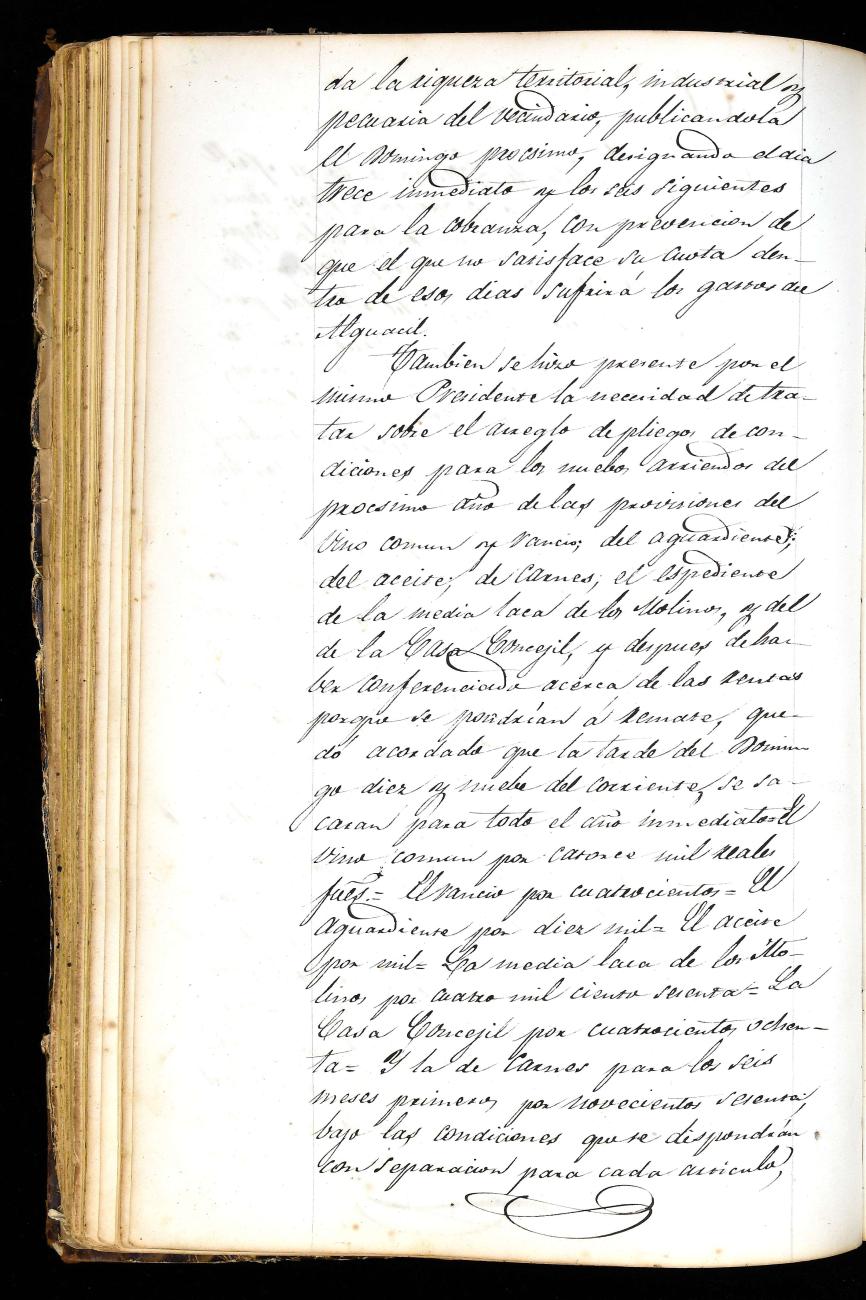 da la riqueza territorial, industrial y
pecuaria del vecindario, publicandola
el Domingo procsimo, designando el dia
trece inmediato y los seis siguientes
para la cobranza, con prevencion de
que el que no satisface su cuota den-
tro de esos dias sufrirá los gastos del
Alguacil.
Tambien se hizo presente por el
mismo Presidente la necesidad de tra-
tar sobre el arreglo de pliegos de con-
diciones para los nuebos arriendos del
procsimo año de las provisiones del
vino comun y rancio; del aguardiente;
del aceite; de carnes; el espediente
de la media laca de los Molinos, y del
de la Casa Concejil, y despues de ha-
ber conferenciado acerca de las rentas
porque se pondrían á remate, que-
dó acordado que la tarde del Domin-
go diez y nuebe del corriente, se sa-
caran para todo el año inmediato=El
vino comun por catorce mil reales
ftes.= El rancio por cuatrocientos= El
aguardiente por diez mil= El aceite
por mil= La media laca de los Mo-
linos por cuatro mil ciento sesenta= La
Casa Concejil por cuatrocientos ochen-
ta= Y la de carnes para los seis
meses primeros por novecientos sesenta,
bajo las condiciones que se dispondrán
con separacion para cada articulo,